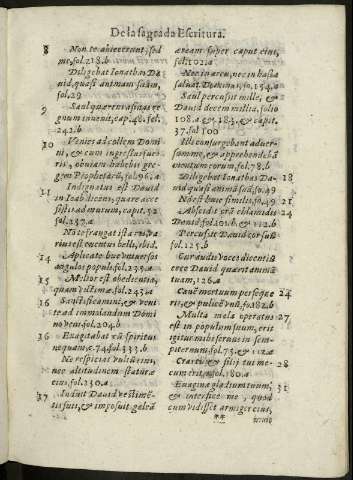 De la sagrada Escritura.
8 Non te abiecerunt, sed
me, fol. 218. b
Diligebat Ionathas Da
uid, quasi animam suam,
fol. 29
9 Saul quærens asinas re
gnum inuenit, cap. 48. fol.
242. b
10 Venies ad collem Domi
ni, & cum ingressus fue
ris, obuiam habebis gre
gem Prophetarũ, fol. 96. a
11 Indignatus est Dauid
in Ioab dicens, quare acce
sistis ad murum, capit. 32
fol. 237. a
No te frangat ista res, va
rius est euentus belli, ibid.
14 Aplicate huc vniuersos
angulos populi, fol. 239. a
15 Melior est obedientia,
quam victimæ, fol. 243. a
16 Sanctificamini, & veni
te ad immolandum Domi
no veni, fol. 204. b
16 Exagitabat eũ spiritus
nequam, c. 74. fol. 333. b
Ne respicias vultũ eius,
nec altitudinem staturæ
eius, fol. 230. a
17 Induit Dauid vestimẽ-
tis suis, & imposuit galeã
æream super caput eius,
fol. 102. a
Nec in arcu, nec in hasta
saluat Dominus, fo. 154. a
Saul percussit mille, &
Dauid decem millia, folio
108. a & 183, & capit.
37. fol 100
Illi consurgebant aduer-
sum me, & apprehendebã
mentum eorum, fol. 78. b
18 Diligebat Ionathas Da-
uid quasi animã suã, fo. 49
21 Nõ est huic similis, fo. 49
24 Abscidit orã chlamidis
Dauid, fol. 101. b, & 112. b
Percussit Dauid cor suũ
fol. 125. b
Cur audis voces dicentiũ
ere Dauid quærit animã
tuam, 126. a
24 Canẽ mortuum perseque
ris, & pulicẽ vnũ, fo. 182. b
27 Multa mala operatus
est in populum suum, erit
igitur mihi seruus in sem-
piternum, fol. 73. & 112. a
28 Cras tu, & filij tui me-
cum erit, a fol. 180. a
31 Euagina gladium tuum,
& interfice me, quod
cum vidisset armiger eius,
**